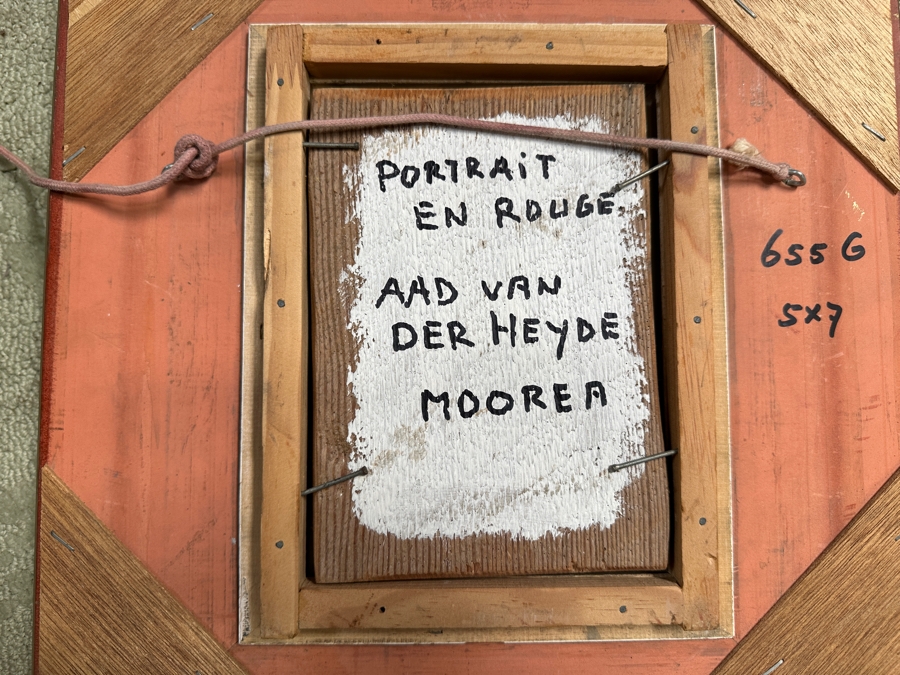 PORTRAiT
EN ROUGE
AAD VAN
DER HEYDE
MOOREA
655 G
5x7